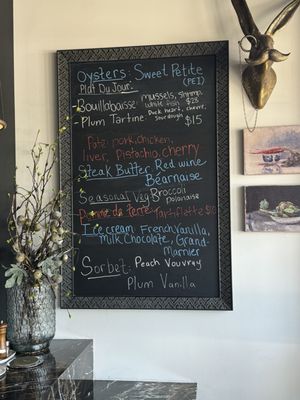 Oysters: Sweet Petite
(PEI)
Plat Du Jour:
-Bouillabaisse: mussels, shrimp,
white fish $28
-Plum Tartine duck heart, chevre,
sourdough $15
Pate: pork, chicken,
liver, Pistachio, cherry
Steak Butter: Red wine
Béarnaise
Seasonal Veg: Broccoli
polonaise
Pomme de terre: Tartiflette $10
Ice cream: French Vanilla,
Milk Chocolate, Grand-
Marnier
Sorbet: Peach Vouvray
Plum Vanilla